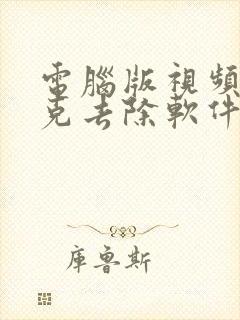 電腦版視頻
克去除軟件
庫魯斯